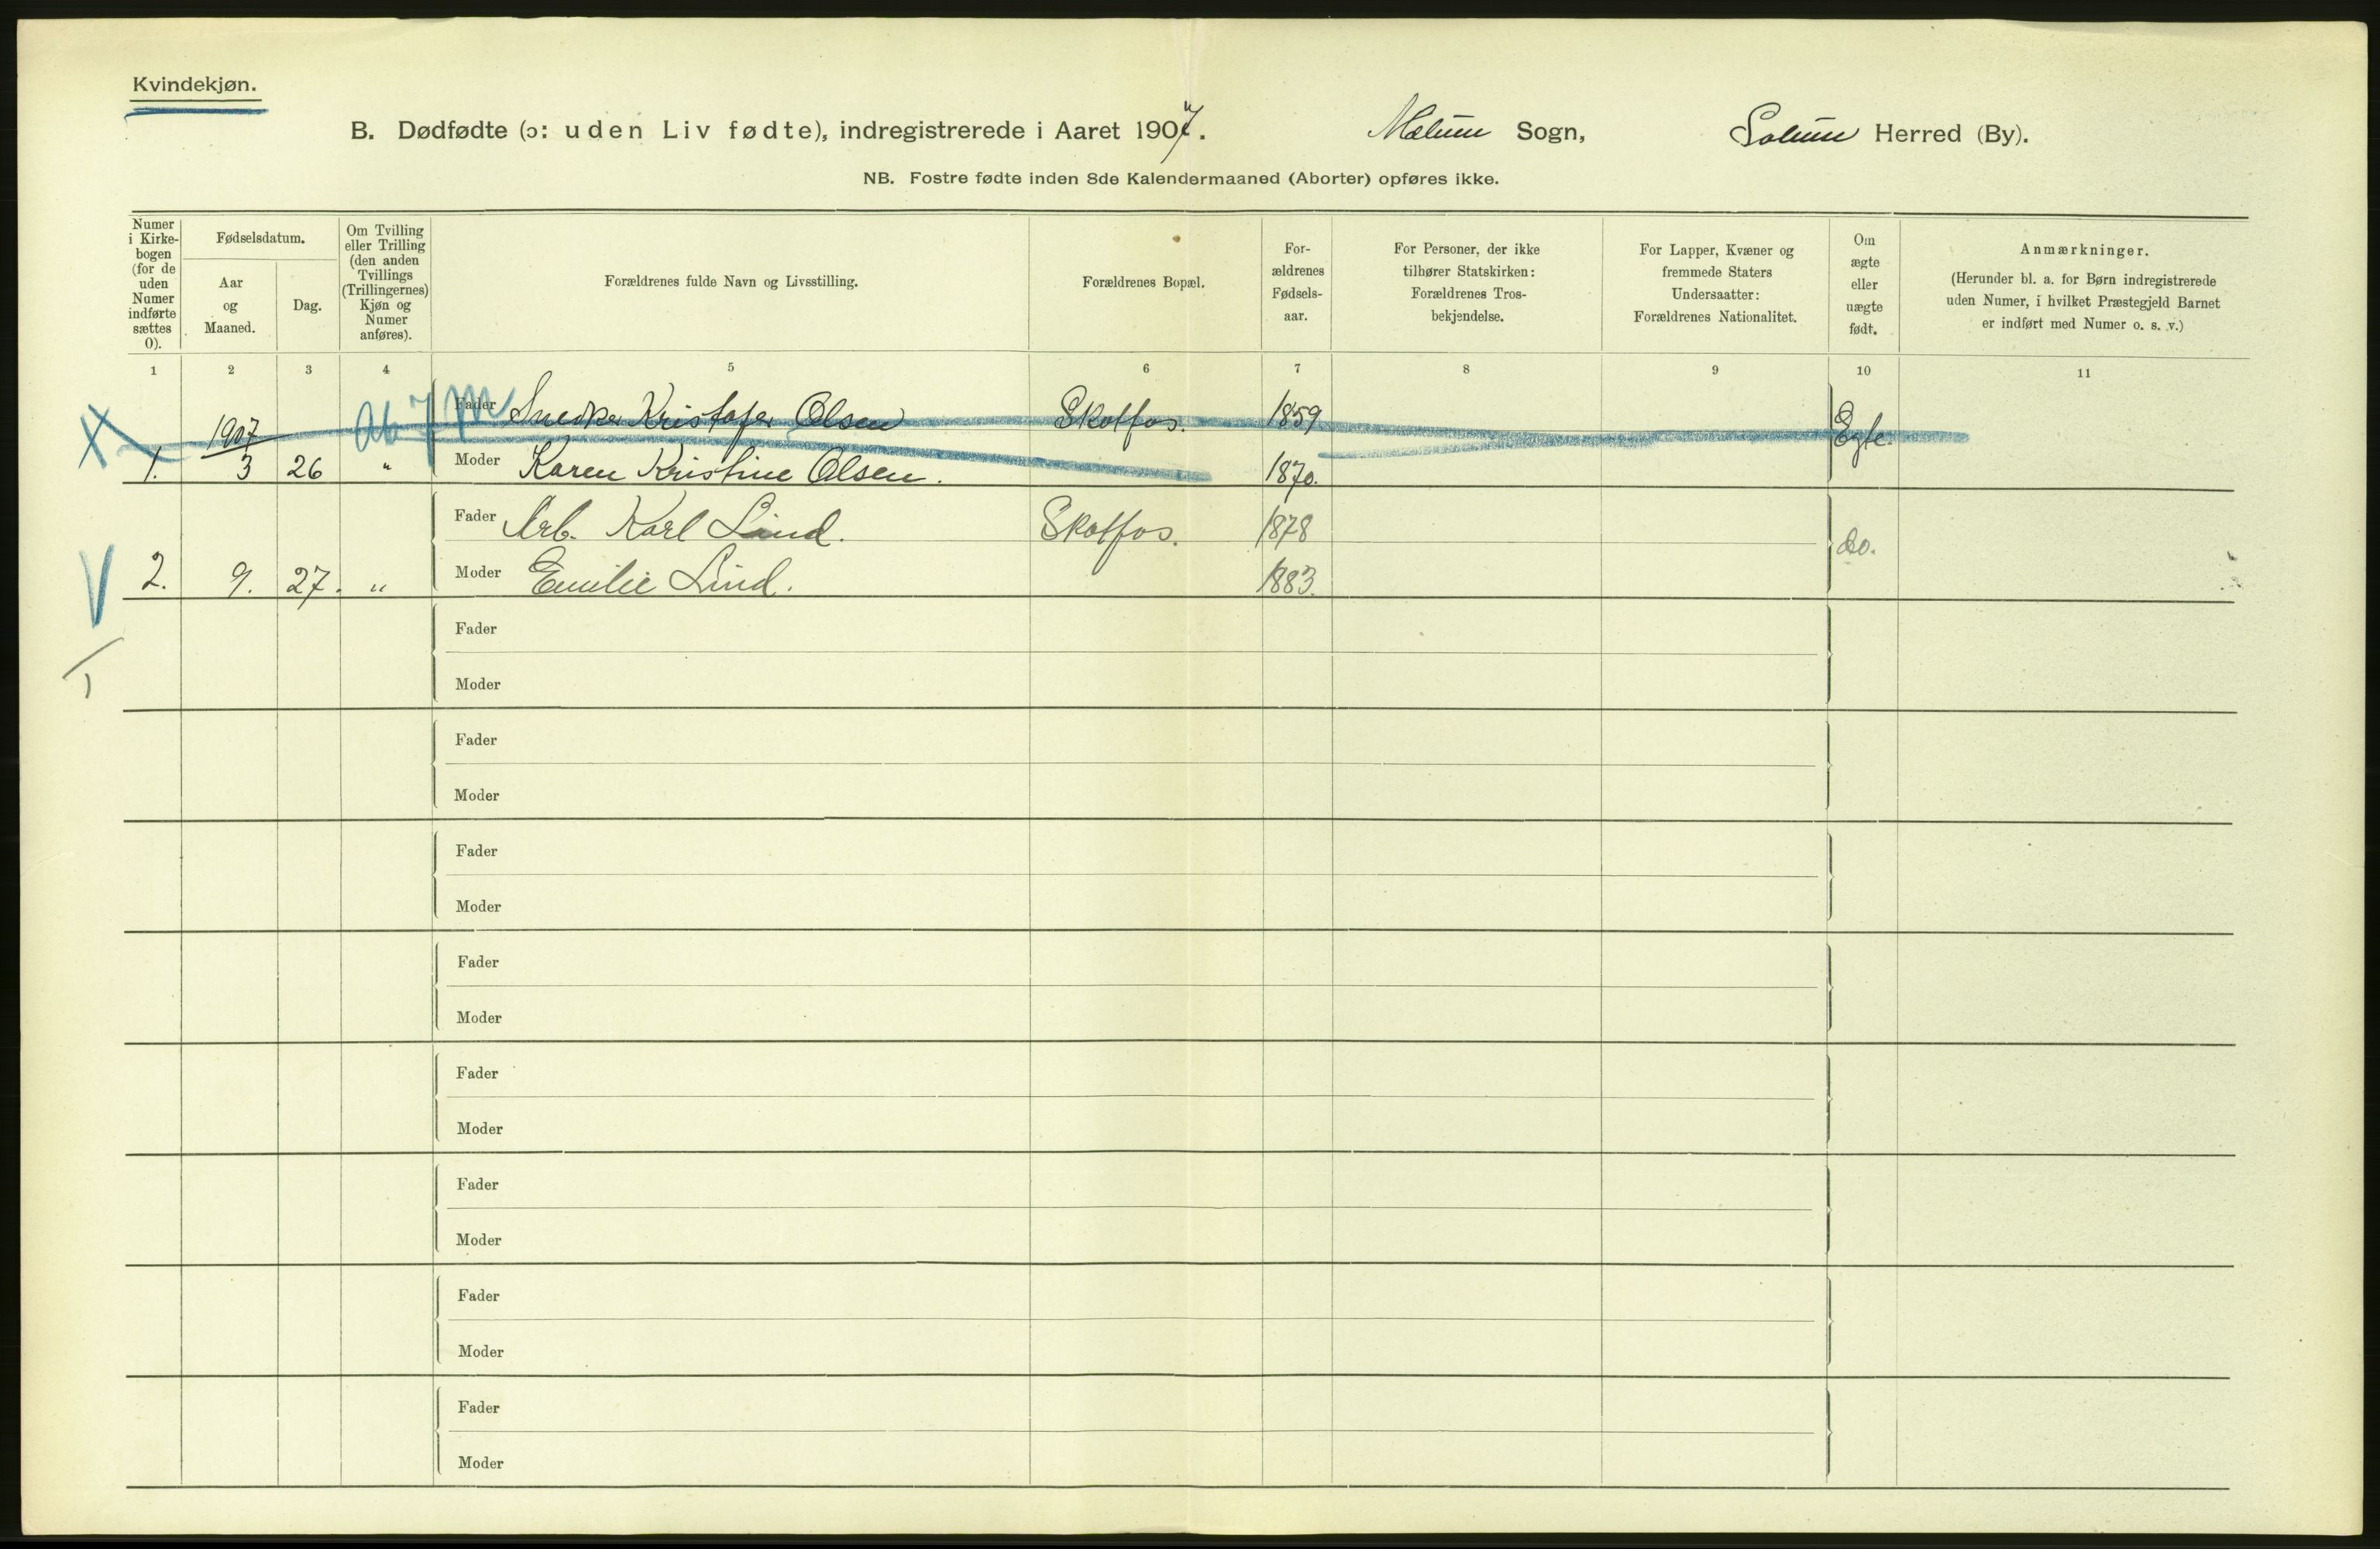 Kvindekjøn.
B. Dødfødte (ɔ: uden Liv fødte), indregistrerede i Aaret 1907. Mælum Sogn, Solum Herred (By).
NB. Fostre fødte inden 8de Kalendermaaned (Aborter) opføres ikke.
Numer i Kirke-bogen (for de uden Numer indførte sættes 0).
Fødselsdatum.
Aar og Maaned.
Dag.
Om Tvilling eller Trilling (den anden Tvillings (Trillingernes) Kjøn og Numer anføres).
Forældrenes fulde Navn og Livsstilling.
Forældrenes Bopæl.
For-ældrenes Fødsels-aar.
For Personer, der ikke tilhører Statskirken: Forældrenes Tros-bekjendelse.
For Lapper, Kvæner og fremmede Staters Undersaatter: Forældrenes Nationalitet.
Om ægte eller uægte født.
Anmærkninger.
(Herunder bl. a. for Børn indregistrerede uden Numer, i hvilket Præstegjeld Barnet er indført med Numer o. s. v.)
1 2 3 4 5 6 7 8 9 10 11
Ab 7 m
1907 Fader Snedker Kristofer Olsen Skotfos. 1859 Egte.
1. 3 26 " Moder Karen Kristine Olsen. 1870.
Fader Arb. Karl Lind. Skotfos. 1878 do.
2. 9. 27. " Moder Emilie Lind. 1883.
Fader
Moder
Fader
Moder
Fader
Moder
Fader
Moder
Fader
Moder
Fader
Moder
Fader
Moder
Fader
Moder